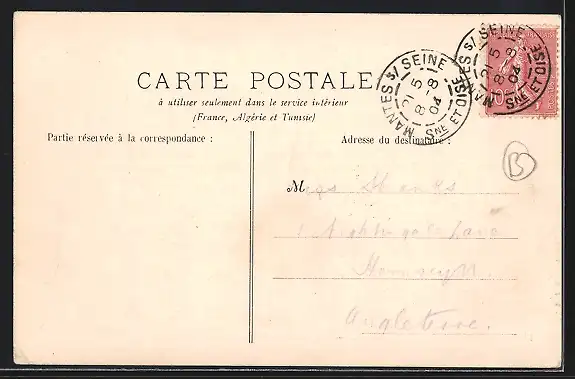 CARTE POSTALE
à utiliser seulement dans le service intérieur
(France, Algérie et Tunisie)
MANTES S/ SEINE
21 5
8-8
04
Sne ET OISE
MANTES S/ SEINE
21 5
8-8
04
Sne ET OISE
10
Partie réservée à la correspondance :
Adresse du destinataire :
B
M
1 Nightingale Lane
Hornsey N
Angleterre.